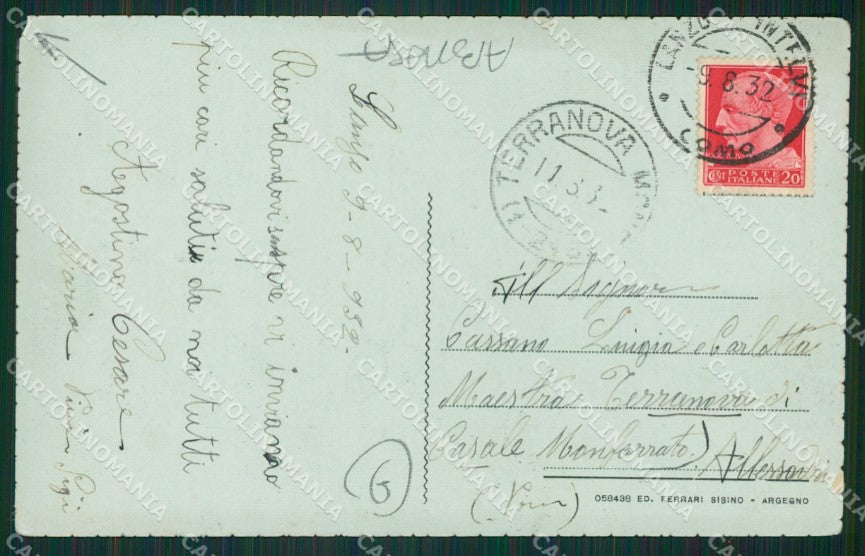 ABNOSO
Lanzo 9-8-932.
Ricordandovi sempre vi inviamo
più cari saluti da noi tutti
Agostina Cesare
Maria
6
LANZO D'INTELVI
9.8.32
COMO
POSTE ITALIANE
CENT 20
TERRANOVA MONF
11.8.32
All Signor
Cassano Luigia e Carlotta
Maestra Terranova di
Casale Monferrato)
Allessandria
058438 ED. FERRARI SISINO - ARGEGNO
CARTOLINOMANIA